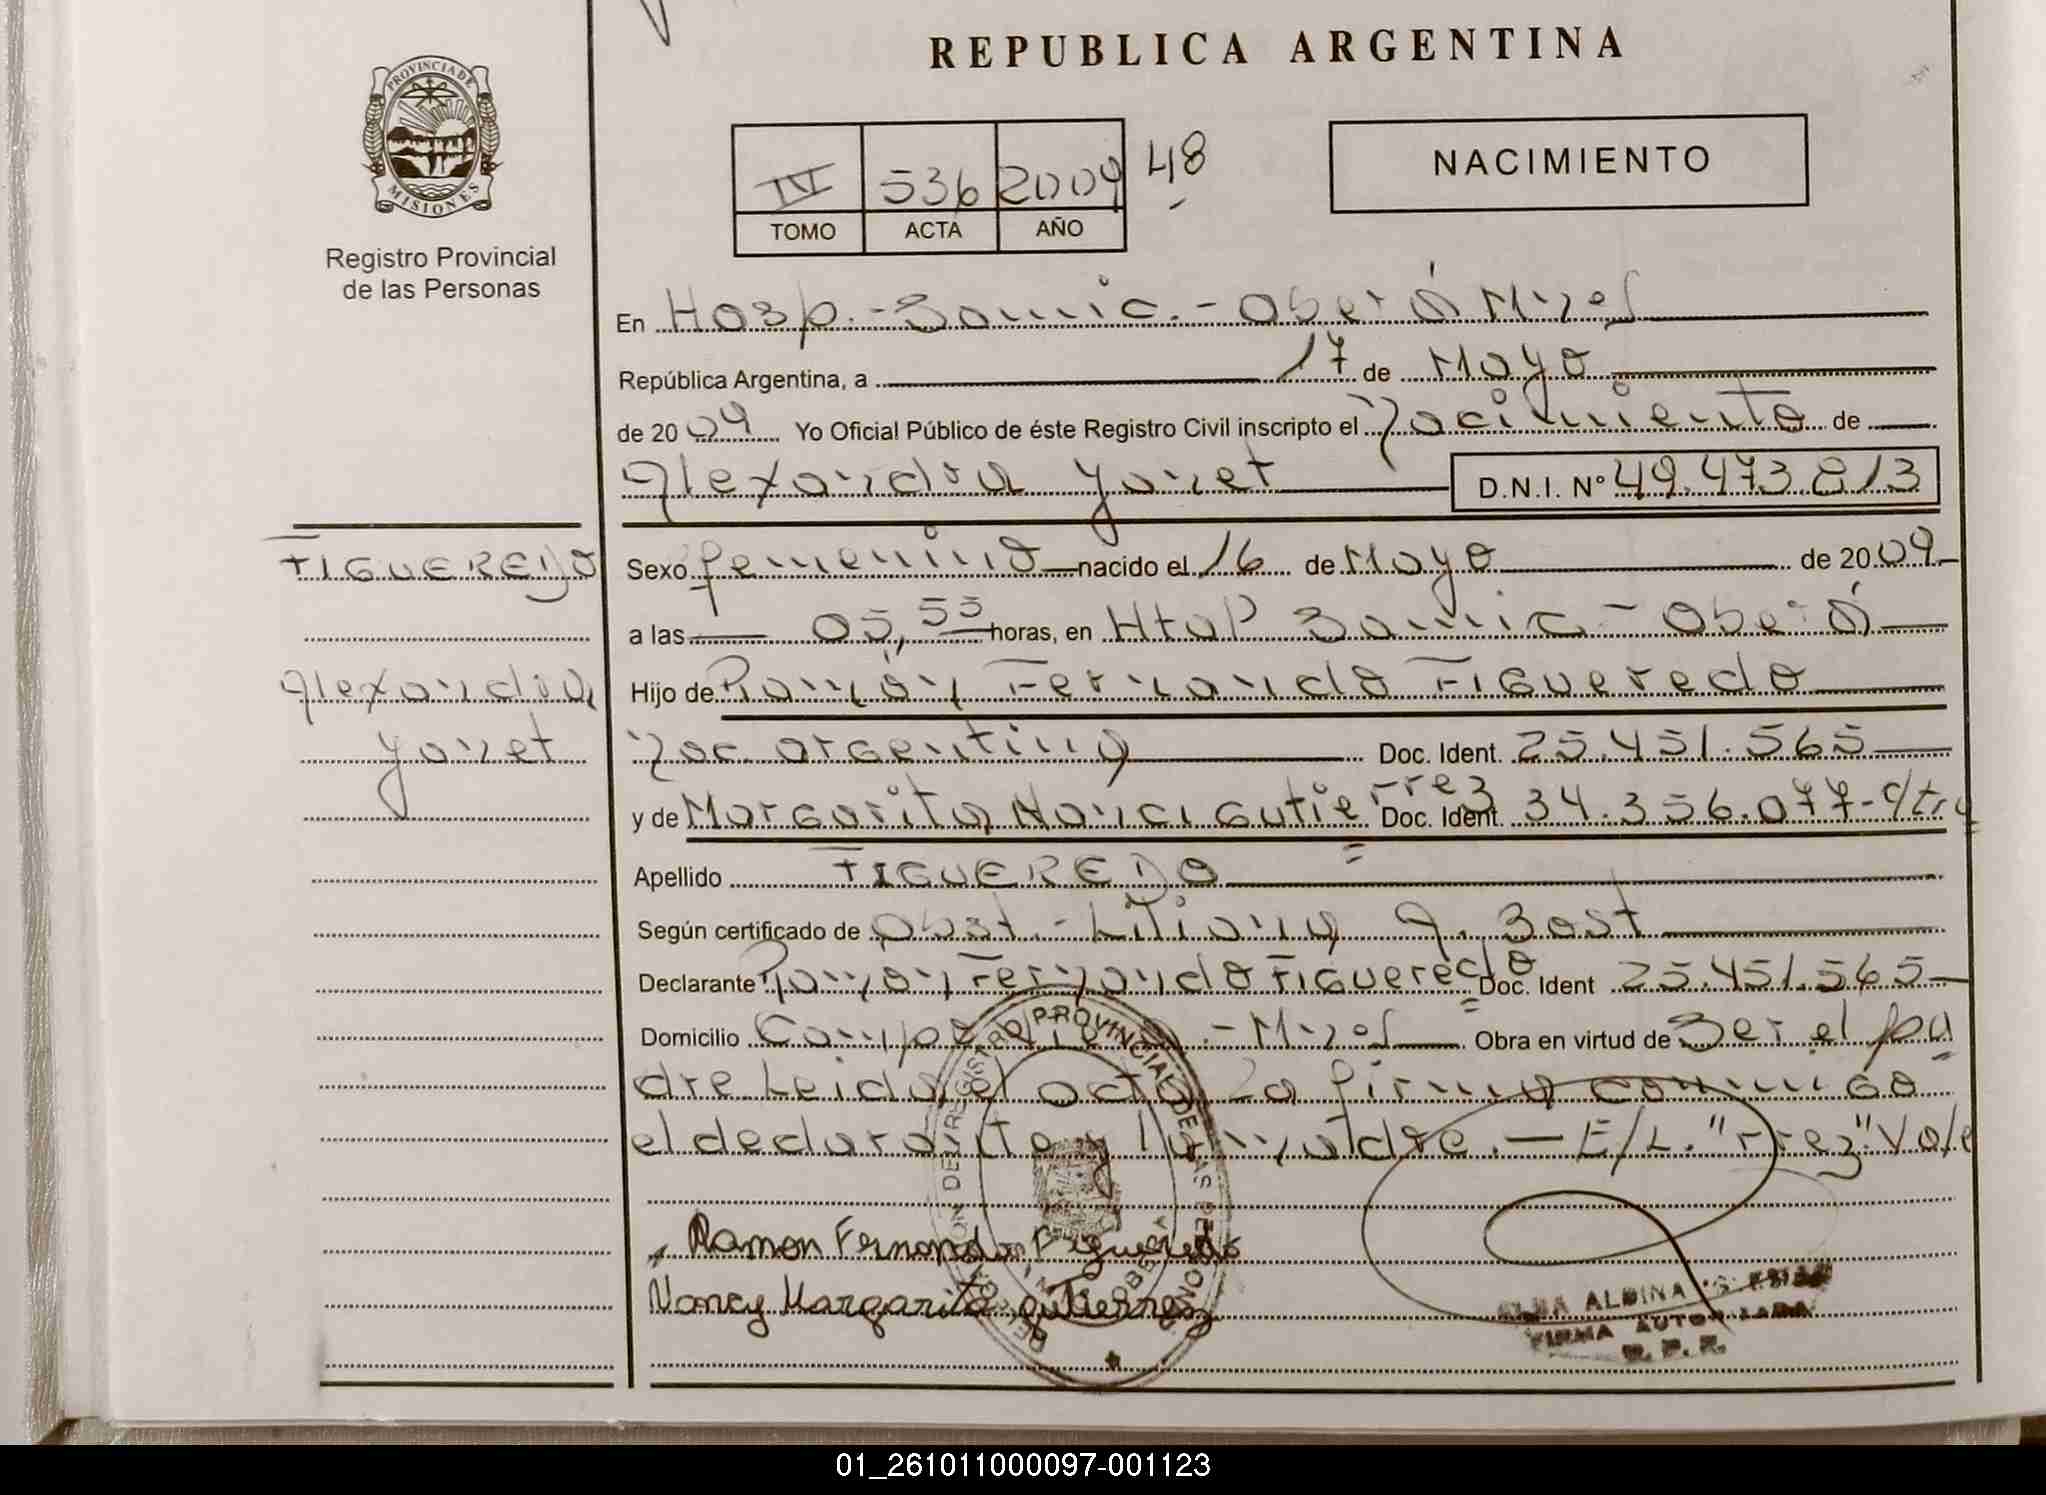 REPUBLICA ARGENTINA
PROVINCIA DE
MISIONES
Registro Provincial
de las Personas
IV 536 2009 48
TOMO ACTA AÑO
NACIMIENTO
En Hosp.- Samic.- Oberá Mnes
República Argentina, a 17 de Mayo
de 2009 Yo Oficial Público de éste Registro Civil inscripto el Nacimiento de
Alexandra Yanet D.N.I. Nº 49.473.813
FIGUEREDO
Alexandra
Yanet
Sexo femenino nacido el 16 de Mayo de 2009
a las 05,55 horas, en Htal Samic - Oberá
Hijo de Ramón Fernando Figueredo
Nac. argentino Doc. Ident. 25.451.565
y de Margarita Nanci Gutierrez Doc. Ident. 34.356.077-
Apellido FIGUEREDO
Según certificado de Obst.- Liliana A. Bast
Declarante Ramon Fernando Figueredo Doc. Ident 25.451.565
Domicilio Campo - Mnes Obra en virtud de Ser el pa
dre Leida el acta La firma conmigo
el declarante y la madre. - E/L. "rrez" Vale
Ramon Fernando Figueredo
Nancy Margarita gutierrez
REGISTRO PROVINCIAL DE LAS PERSONAS
ALDINA
FIRMA AUTORIZADA
R. P. P.
01_261011000097-001123